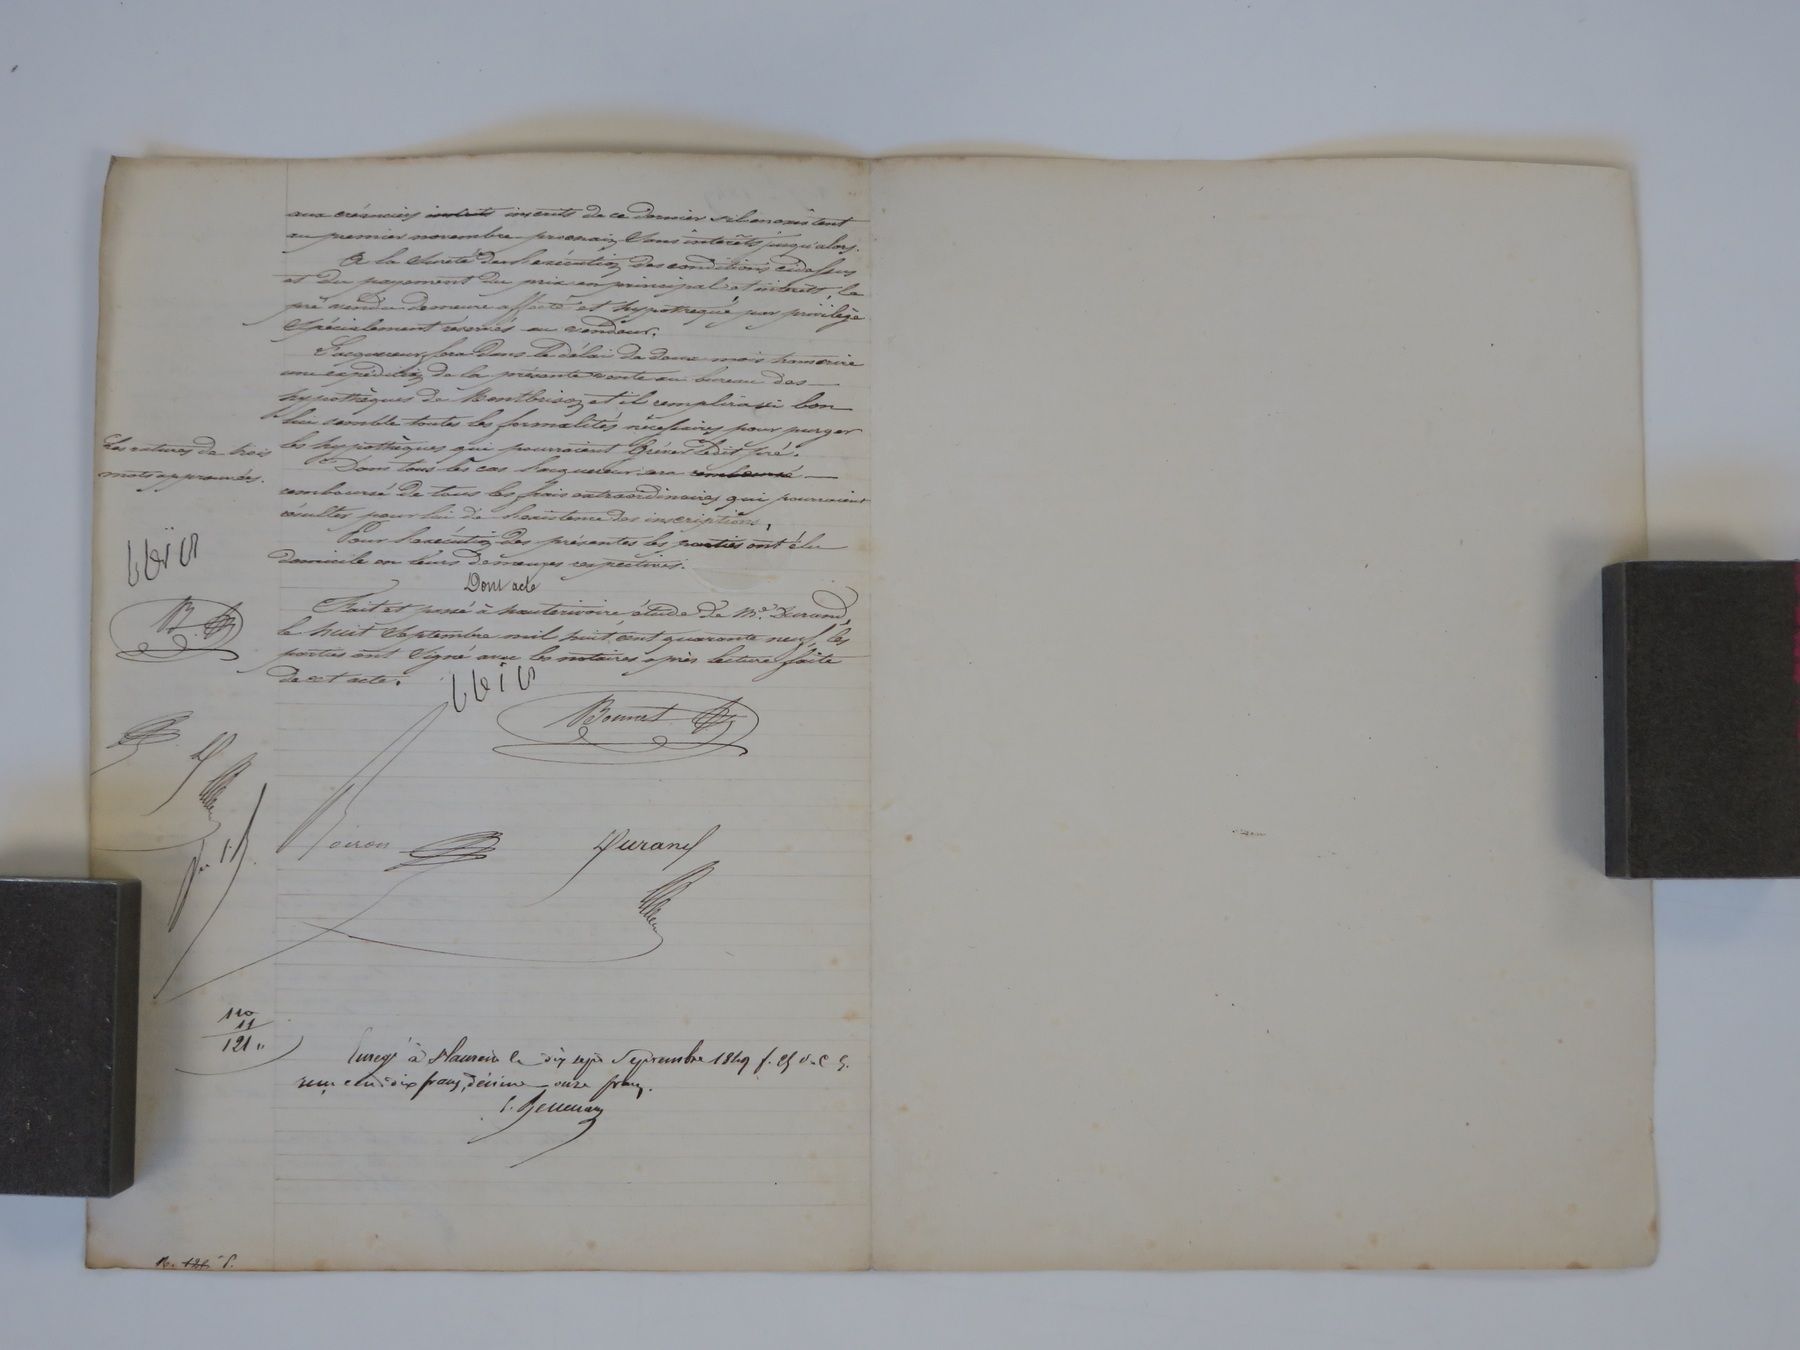 aux créanciers inscrits inscrits de ce dernier s'il en existent
au premier novembre prochain, sans intérêts jusqu'alors.
A la sureté de l'exécution des conditions cidessus
et du payement du prix en principal et intérêts, le
pré vendu demeure affecté et hypothéqué par privilège
spécialement réservé au vendeur.
L'acquéreur fera dans le délai de deux mois transcrire
une expédition de la présente vente au bureau des
hypothèques de Montbrison et il remplira si bon
lui semble toutes les formalités nécessaires pour purger
les hypothèques qui pourraient Gréver ledit pré.
Dans tous les cas l'acquéreur sera remboursé
remboursé de tous les frais extraordinaires qui pourraient
résulter pour lui de l'existence des inscriptions.
Pour l'exécution des présentes les parties ont élu
domicile en leurs demeures respectives.
Dont acte
Fait et passé à hauterivoire étude de Me. Durand,
le huit Septembre mil huit cent quarante neuf, les
parties ont signé avec les notaires après lecture faite
de cet acte.
Les ratures de trois
mots approuvées.
B
Bonnet
Durand
110
11
121 "
Enregé à St Laurent le dix sept Septembre 1849 f. 25 v. C 5.
reçu cent dix francs, décime onze francs.